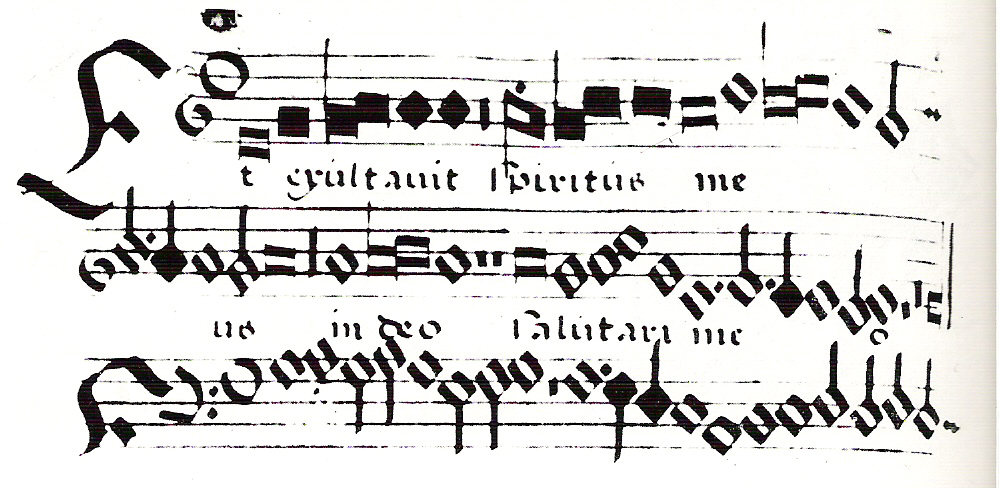 Et exultauit spiritus me
us in deo salutari me